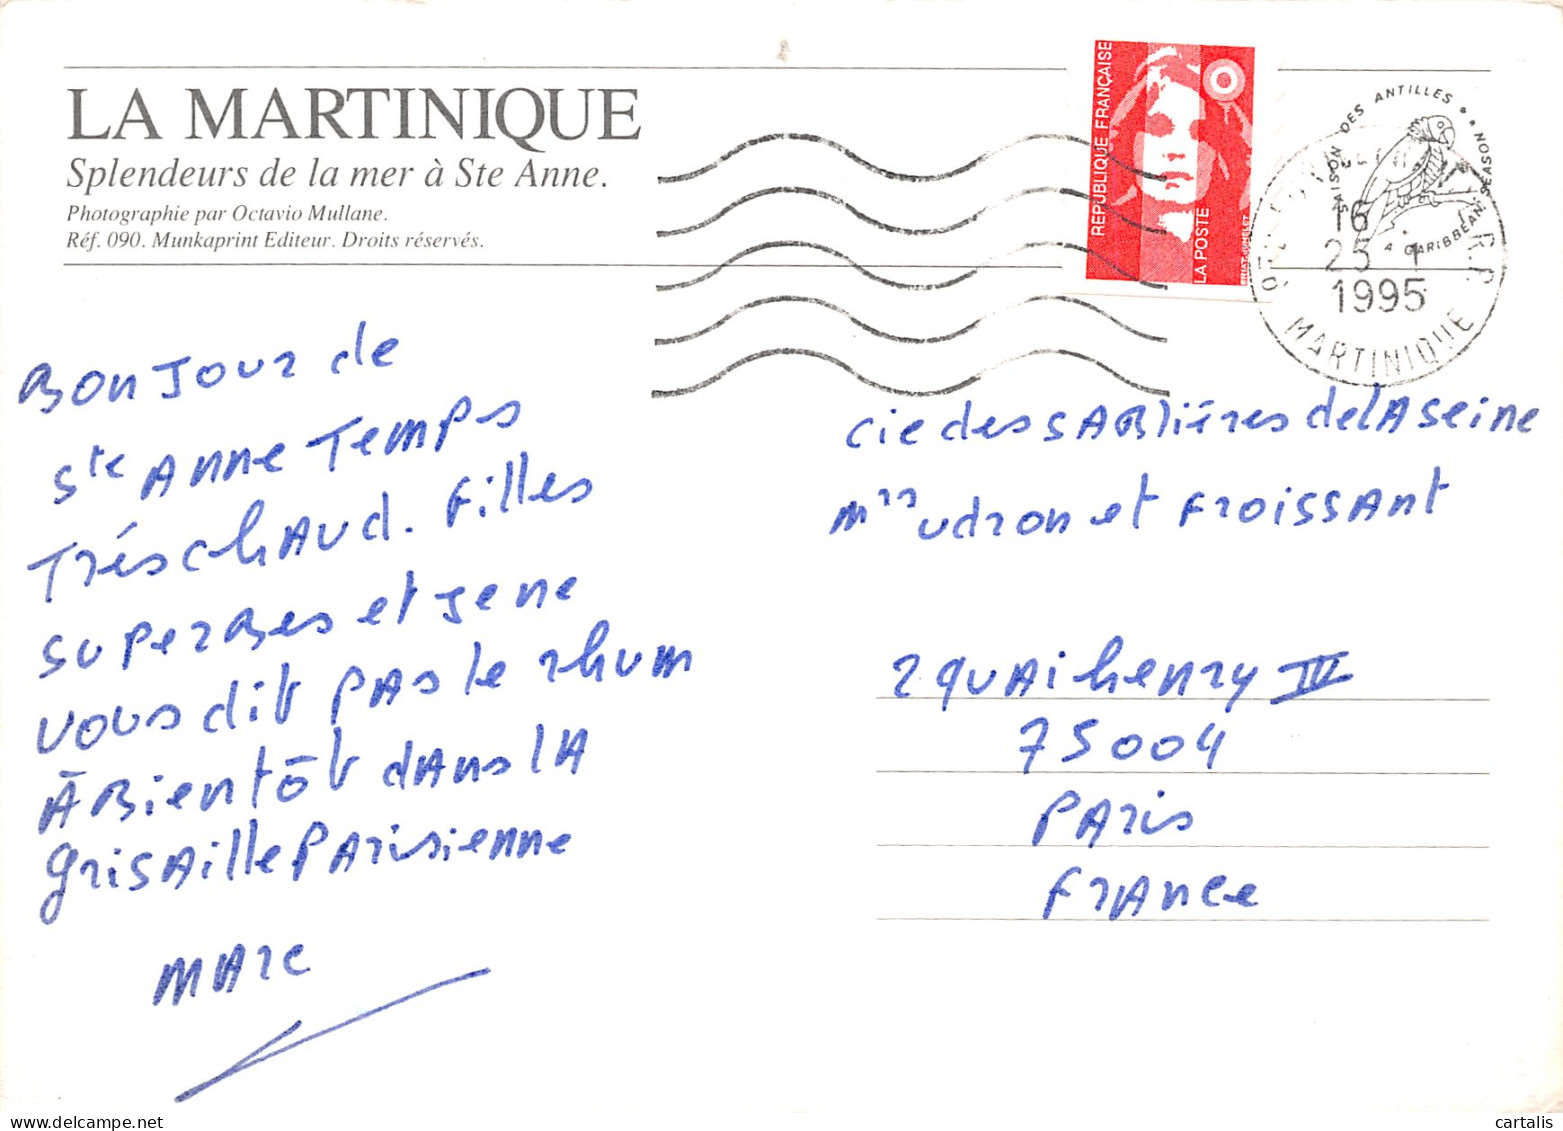 LA MARTINIQUE
Splendeurs de la mer à Ste Anne.
Photographie par Octavio Mullane.
Réf. 090. Munkaprint Editeur. Droits réservés.
REPUBLIQUE FRANÇAISE
LA POSTE
SAISON DES ANTILLES
A CARIBBEAN SEASON
R.P.
16
23 1
1995
MARTINIQUE
Bonjour de
Ste Anne Temps
très chaud. Filles
superbes et je ne
vous dit pas le rhum
À Bientôt dans la
grisaille Parisienne
Marc
Cie des Sablières de la Seine
Mrs Udron et Froissant
2 quai henry IV
75004
Paris
France
cartalis